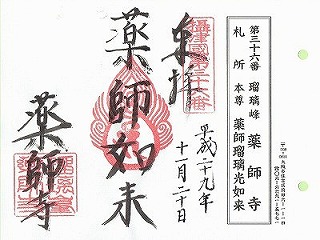 第三十六番 瑠璃峰 薬師寺
札所 本尊 薬師瑠璃光如来
奉拝
平成二十九年
十一月二十日
薬師如来
薬師寺